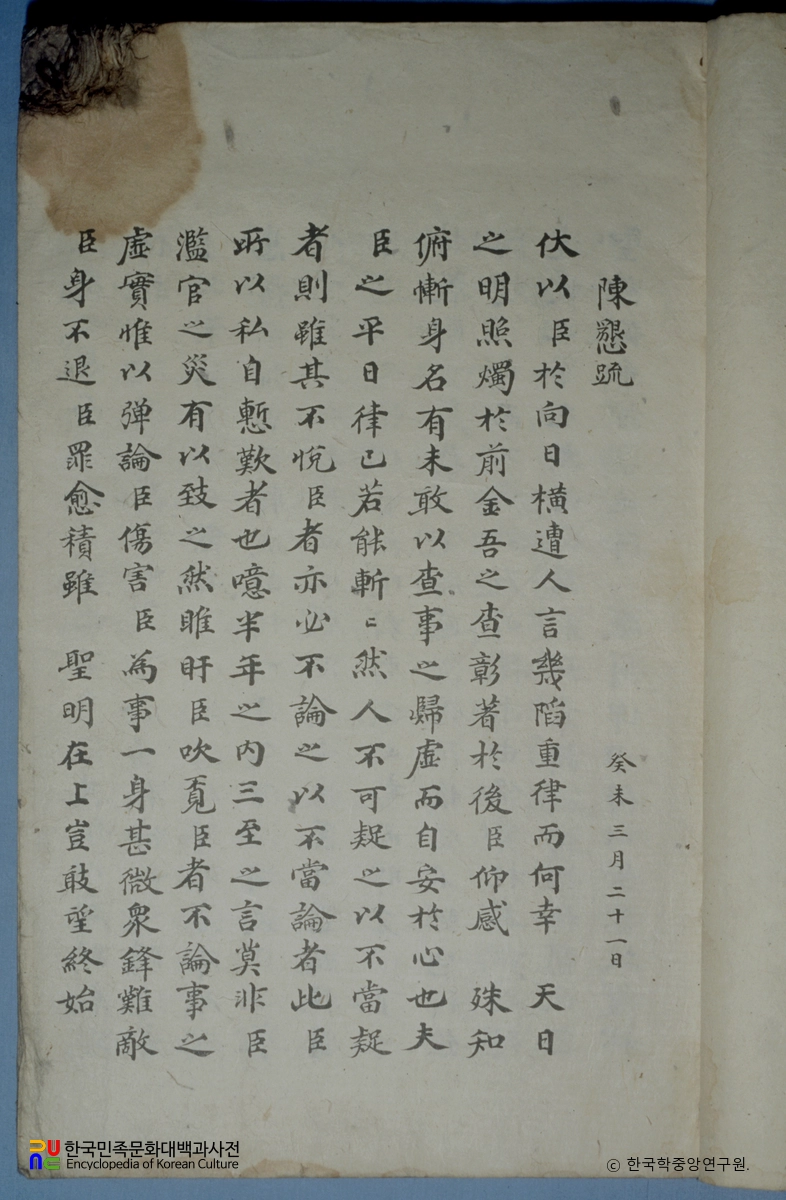 陳懇疏
癸未三月二十一日
伏以臣於向日橫遭人言幾陷重律而何幸 天日
之明照燭於前金吾之查彰著於後臣仰感 殊知
俯慚身名有未敢以查事之歸虛而自安於心也夫
臣之平日律己若能斬〻然人不可疑之以不當疑
者則雖其不悅臣者亦必不論之以不當論者此臣
所以私自慙歎者也噫半年之內三至之言莫非臣
濫官之災有以致之然睢盱臣吹覔臣者不論事之
虛實惟以弹論臣傷害臣為事一身甚微衆鋒難敵
臣身不退臣罪愈積雖 聖明在上豈敢望終始
한국민족문화대백과사전
Encyclopedia of Korean Culture
ⓒ 한국학중앙연구원.